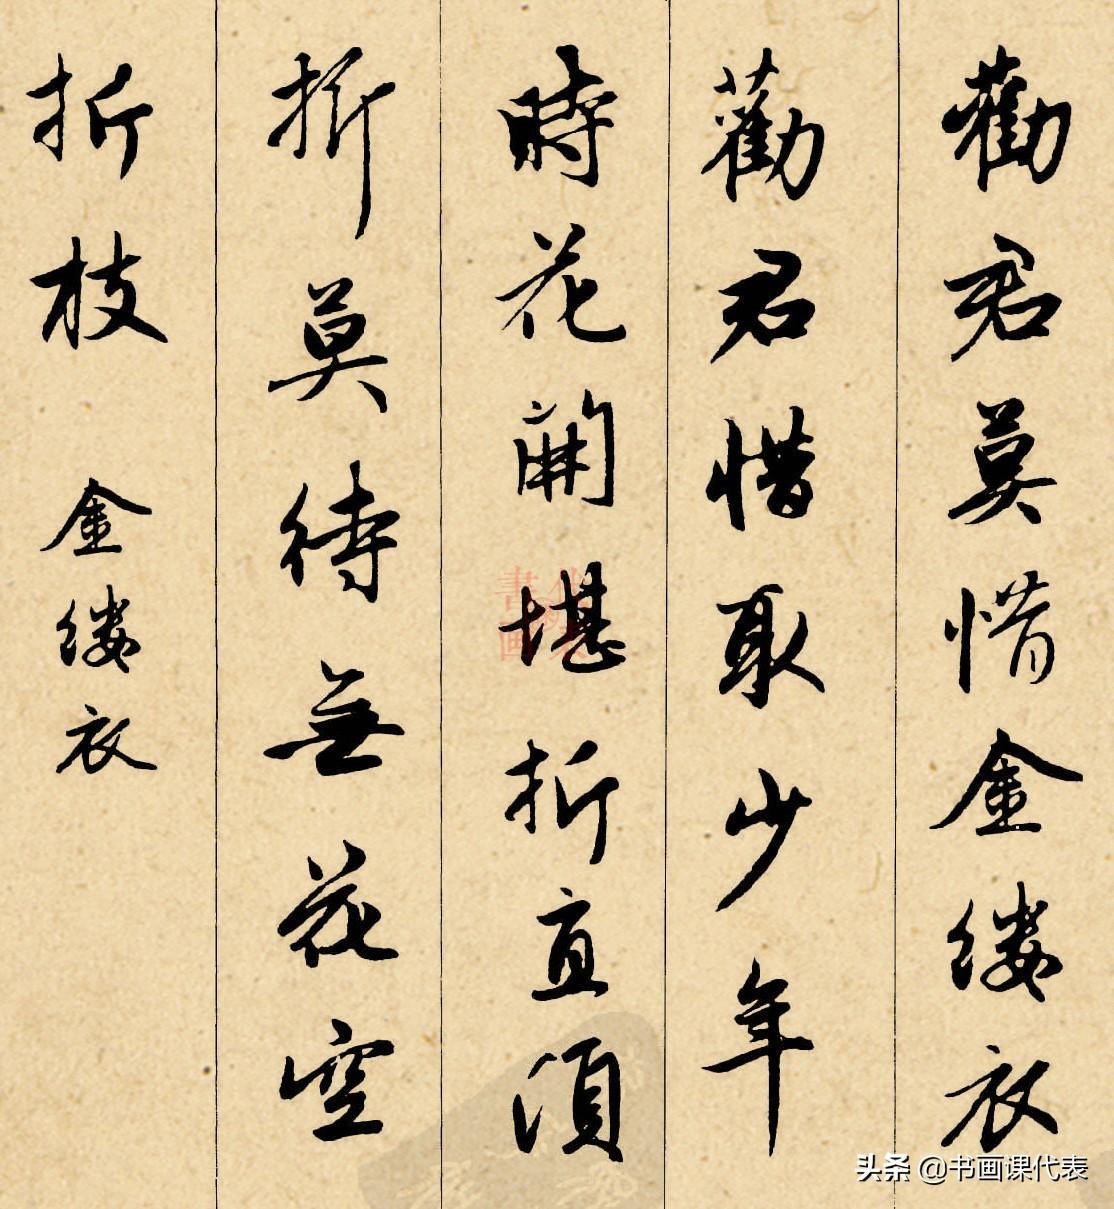 勸君莫惜金缕衣
勸君惜取少年
時花開堪折直須
折莫待無花空
折枝 金缕衣
書画代表
头条 @书画课代表